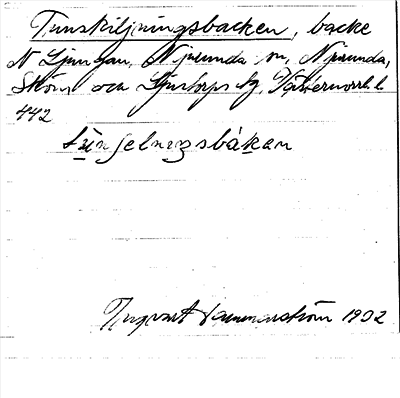 Tunskiljningsbacken, backe
N Ljungan, Njurunda sn, Njurunda,
Sköns och Ljustorps tg, Västernorrl. l.
442
tu̲nʃelnɩŋsbák̲an
Ingvart Hammarström 1932